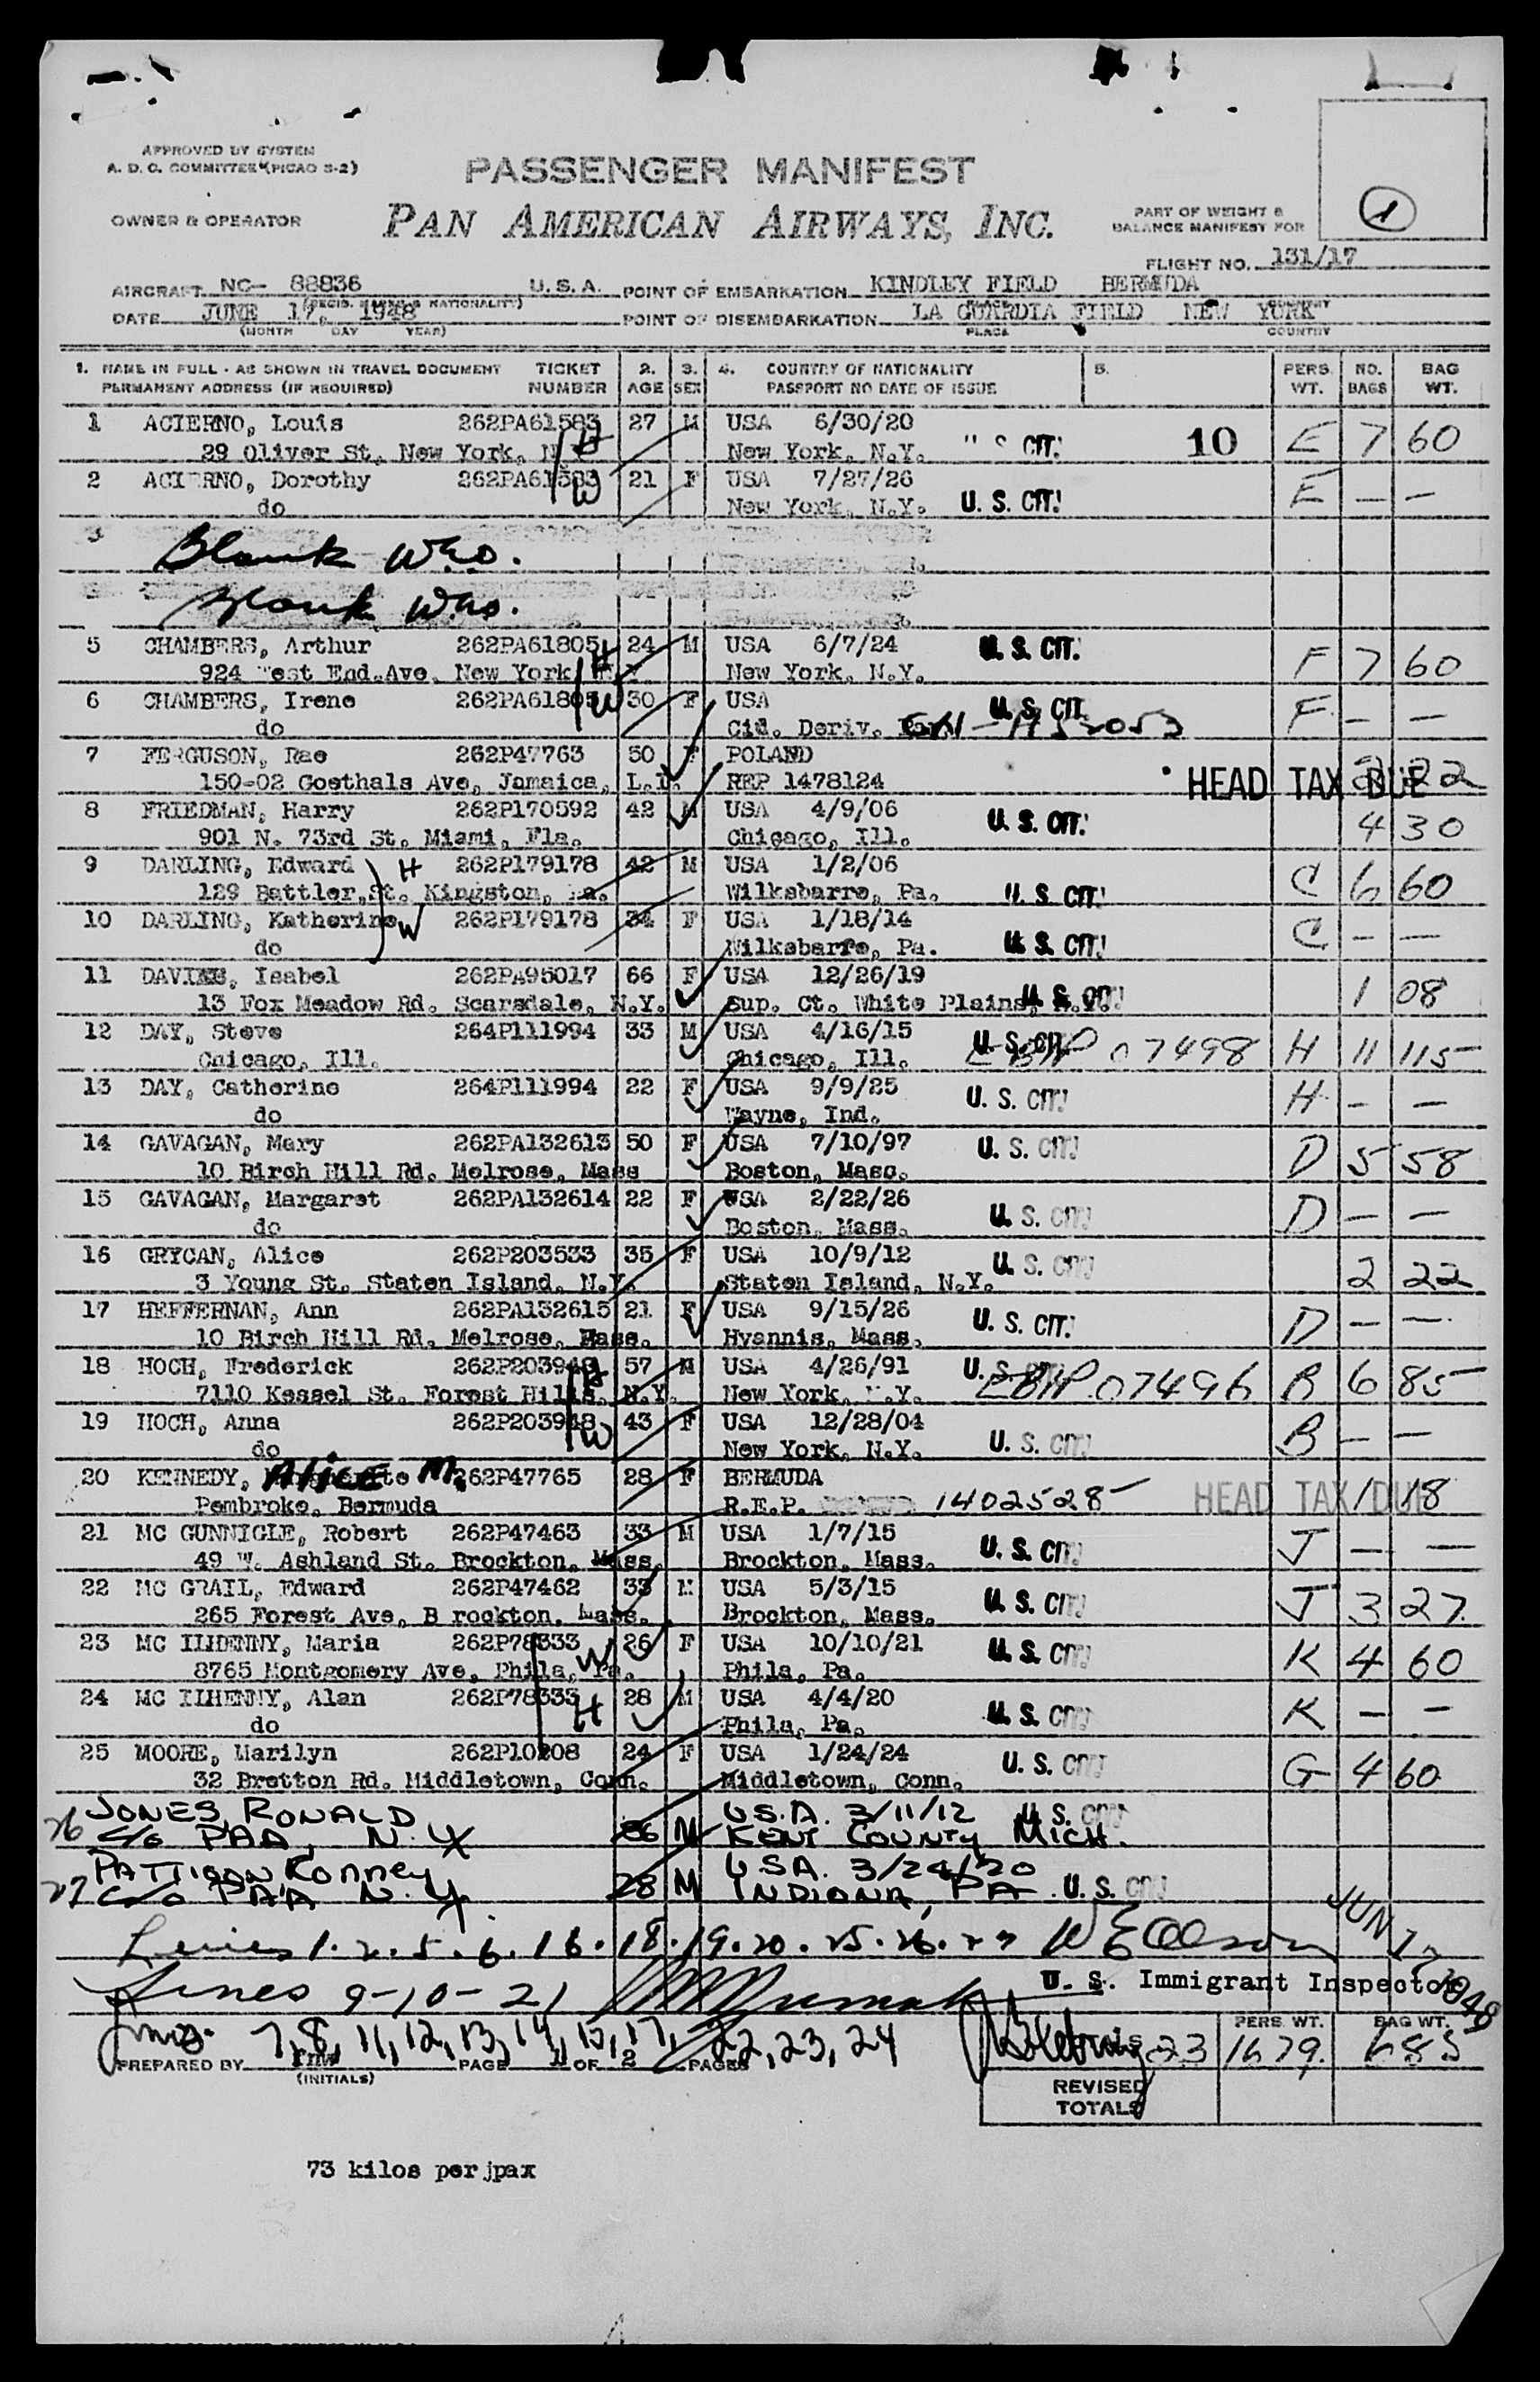 APPROVED BY SYSTEM
A. D. C. COMMITTEE (PICAO S-2)
PASSENGER MANIFEST
OWNER & OPERATOR PAN AMERICAN AIRWAYS, INC.
PART OF WEIGHT &
BALANCE MANIFEST FOR
1
FLIGHT NO. 131/17
AIRCRAFT NC- 88836 U.S.A. POINT OF EMBARKATION KINDLEY FIELD BERMUDA
(REGIS. MARKS & NATIONALITY) PLACE COUNTRY
DATE JUNE 17, 1948 POINT OF DISEMBARKATION LA GUARDIA FIELD NEW YORK
(MONTH DAY YEAR) PLACE COUNTRY
1. NAME IN FULL - AS SHOWN IN TRAVEL DOCUMENT TICKET 2. 3. 4. COUNTRY OF NATIONALITY 5. PERS. NO. BAG
PERMANENT ADDRESS (IF REQUIRED) NUMBER AGE SEX PASSPORT NO DATE OF ISSUE WT. BAGS WT.
1 ACIERNO, Louis 262PA61583 27 M USA 6/30/20 10 E 7 60
29 Oliver St, New York, N H New York, N.Y. " S CIT!
2 ACIERNO, Dorothy 262PA61583 21 F USA 7/27/26 E — —
do W New York, N.Y. U. S. CIT!
3
Blank
Blank
5 CHAMBERS, Arthur 262PA61805 24 M USA 6/7/24 U. S. CIT. F 7 60
924 West End.Ave. New York H Y New York, N.Y.
6 CHAMBERS, Irene 262PA61805 30 F USA U. S. CIT F — —
do W Cid. Deriv.
7 FERGUSON, Rae 262P47763 50 F POLAND
150-02 Goethals Ave, Jamaica, L.I. REP 1478124 HEAD TAX DUE 2 22
8 FRIEDMAN, Harry 262P170592 42 M USA 4/9/06 U. S. CIT. 4 30
901 N. 73rd St. Miami, Fla. Chicago, Ill.
9 DARLING, Edward H 262P179178 42 M USA 1/2/06 C 6 60
129 Battler,St. Kingston, Pa. Wilksbarre, Pa. U. S. CIT!
10 DARLING, Katherine W 262P179178 34 F USA 1/18/14 C — —
do Wilksbarre, Pa. U. S. CIT!
11 DAVIES, Isabel 262PA95017 66 F USA 12/26/19 1 08
13 Fox Meadow Rd. Scarsdale, N.Y. Sup. Ct. White Plains, N.Y.
12 DAY, Steve 264P111994 33 M USA 4/16/15 U. S. CIT 07498 H 11 115
Chicago, Ill. Chicago, Ill.
13 DAY, Catherine 264P111994 22 F USA 9/9/25 U. S. CIT! H — —
do Wayne, Ind.
14 GAVAGAN, Mary 262PA132613 50 F USA 7/10/97 U. S. CIT! D 5 58
10 Birch Hill Rd. Melrose, Mass Boston, Mass.
15 GAVAGAN, Margaret 262PA132614 22 F USA 2/22/26 U. S. CIT! D — —
do Boston, Mass.
16 GRYCAN, Alice 262P203533 35 F USA 10/9/12 U. S. CIT! 2 22
3 Young St. Staten Island, N.Y. Staten Island, N.Y.
17 HEFFERNAN, Ann 262PA132615 21 F USA 9/15/26 U. S. CIT. D — —
10 Birch Hill Rd. Melrose, Mass. Hyannis, Mass.
18 HOCH, Frederick 262P203948 57 M USA 4/26/91 U. S. 07496 B 6 85
7110 Kessel St. Forest Hills, N.Y. H New York, N.Y.
19 HOCH, Anna 262P203948 43 F USA 12/28/04 B — —
do W New York, N.Y. U. S. CIT!
20 KENNEDY, Alice M. 262P47765 28 F BERMUDA
Pembroke, Bermuda R.E.P. 1402528 HEAD TAX DUE 1 18
21 MC GUNNIGLE, Robert 262P47463 33 M USA 1/7/15 U. S. CIT! J — —
49 W. Ashland St. Brockton, Mass. Brockton, Mass.
22 MC GRAIL, Edward 262P47462 33 M USA 5/3/15 U. S. CIT! J 3 27
265 Forest Ave, B rockton, Mass. Brockton, Mass.
23 MC ILHENNY, Maria 262P78333 26 F USA 10/10/21 U. S. CIT! K 4 60
8765 Montgomery Ave, Phila, Pa. W Phila, Pa.
24 MC ILHENNY, Alan 262P78333 28 M USA 4/4/20 U. S. CIT! K — —
do H Phila, Pa.
25 MOORE, Marilyn 262P10208 24 F USA 1/24/24 U. S. CIT! G 4 60
32 Bretton Rd. Middletown, Conn. Middletown, Conn.
26 JONES, RONALD 36 M U.S.A. 3/11/12 U. S. CIT!
c/o PAA, N.Y. KENT COUNTY MICH.
27 PATTISON RONNEY 28 M U.S.A. 3/24/20
c/o PAA N.Y. INDIANA, PA U. S. CIT!
JUN 17 1948
Lines 1. 2. 5. 6. 16. 18. 19. 20. 25. 26. 27
U. S. Immigrant Inspector
Lines 9-10-21
Lines 7, 8, 11, 12, 13, 14, 15, 17, 22, 23, 24
PREPARED BY PAGE 1 OF 2 PAGES
(INITIALS)
PERS. WT. BAG WT.
23 1679 685
REVISED
TOTALS
73 kilos per jpax